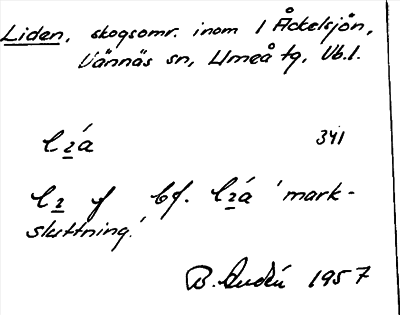 Liden, skogsomr. inom 1 Åckelsjön,
Vännäs sn, Umeå tg, Vb.l.
341
f bf. 'mark-
sluttning.'
B. 1957